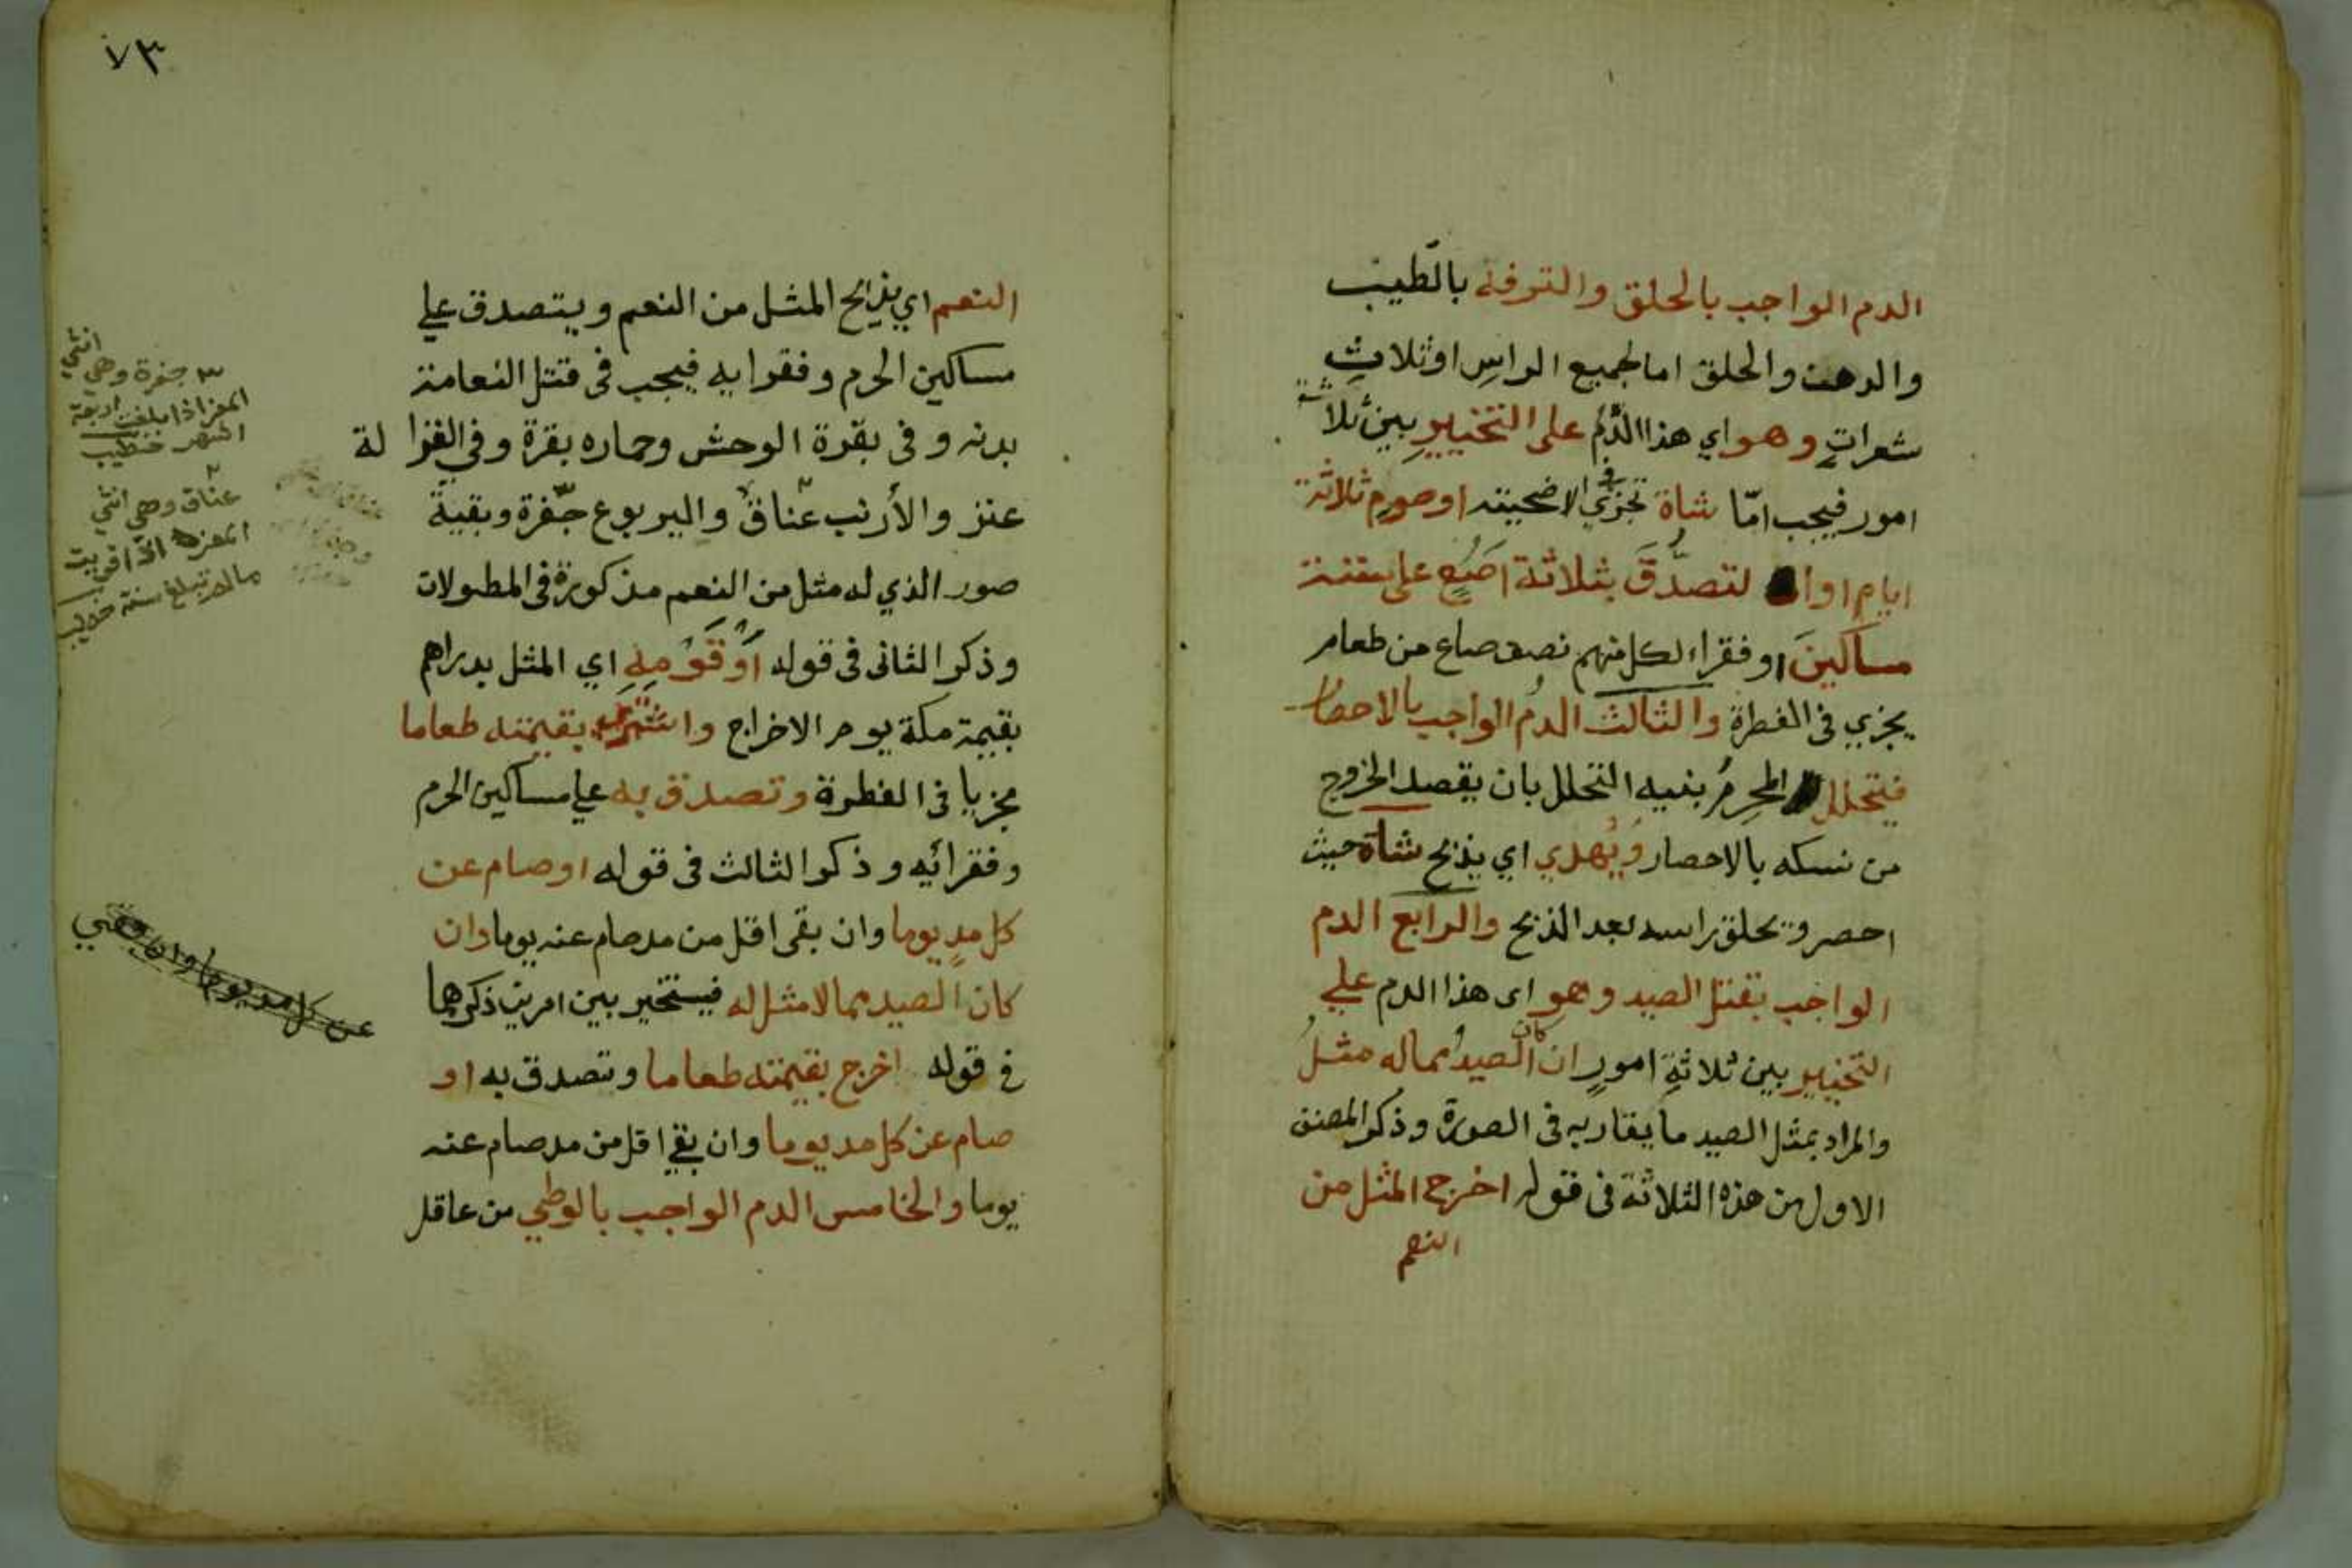 الدم الواجب بالحلق والترفه بالطيب
والدهن والحلق اما لجميع الراس او ثلاث
شعرات وهو اي هذا الدم على التخيير بين ثلاثة
امور فيجب امّا شاة تجزي في الاضحيته او صوم ثلاثة
ايام او التصدّق بثلاثة اصع على ستة
مساكين او فقراء لكل منهم نصف صاع من طعام
يجزي في الفطرة والثالث الدم الواجب بالاحصار
فيتحلل المحرم بنيه التحلل بان يقصد الخروج
من نسكه بالاحصار ويهدي اي يذبح شاة حيث
احصر ويحلق راسه بعد الذبح والرابع الدم
الواجب بقتل الصيد وهو اى هذا الدم علي
التخيير بين ثلاثة امور ان كان الصيد مماله مثل
والمراد بمثل الصيد ما يقاربه فى الصورة وذكر المصنف
الاول من هذه الثلاثة فى قوله اخرج المثل من
النعم
٧٣
النعم اي يذبح المثل من النعم ويتصدق علي
مساكين الحرم وفقرايه فيجب فى قتل النعامة
بدنه وفى بقرة الوحش وحماره بقرة وفي الغزا لة
عنز والأرنب عناق واليربوع جفرة وبقية
صور الذي له مثل من النعم مذكورة فى المطولات
وذكر الثانى فى قوله أو قومه اي المثل بدراهم
بقيمة مكة يوم الاخراج واشترى بقيمته طعاما
مجزيا فى الفطرة وتصدق به علي مساكين الحرم
وفقرائه وذكر الثالث فى قوله او صام عن
كل مد يوما وان بقى اقل من مد صام عنه يوما وان
كان الصيد مما لا مثل له فيتخير بين امرين ذكرهما
في قوله اخرج بقيمته طعاما وتصدق به او
صام عن كل مد يوما وان بقي اقل من مد صام عنه
يوما والخامس الدم الواجب بالوطي من عاقل
٣ جفرة وهي انثي
المعز اذا بلغت اربعة
اشهر خطيب
٢
عناق وهي انثي
المعز اذا قويت
مالم تبلغ سنة خطيب
عن كل مد يوما وان بقي